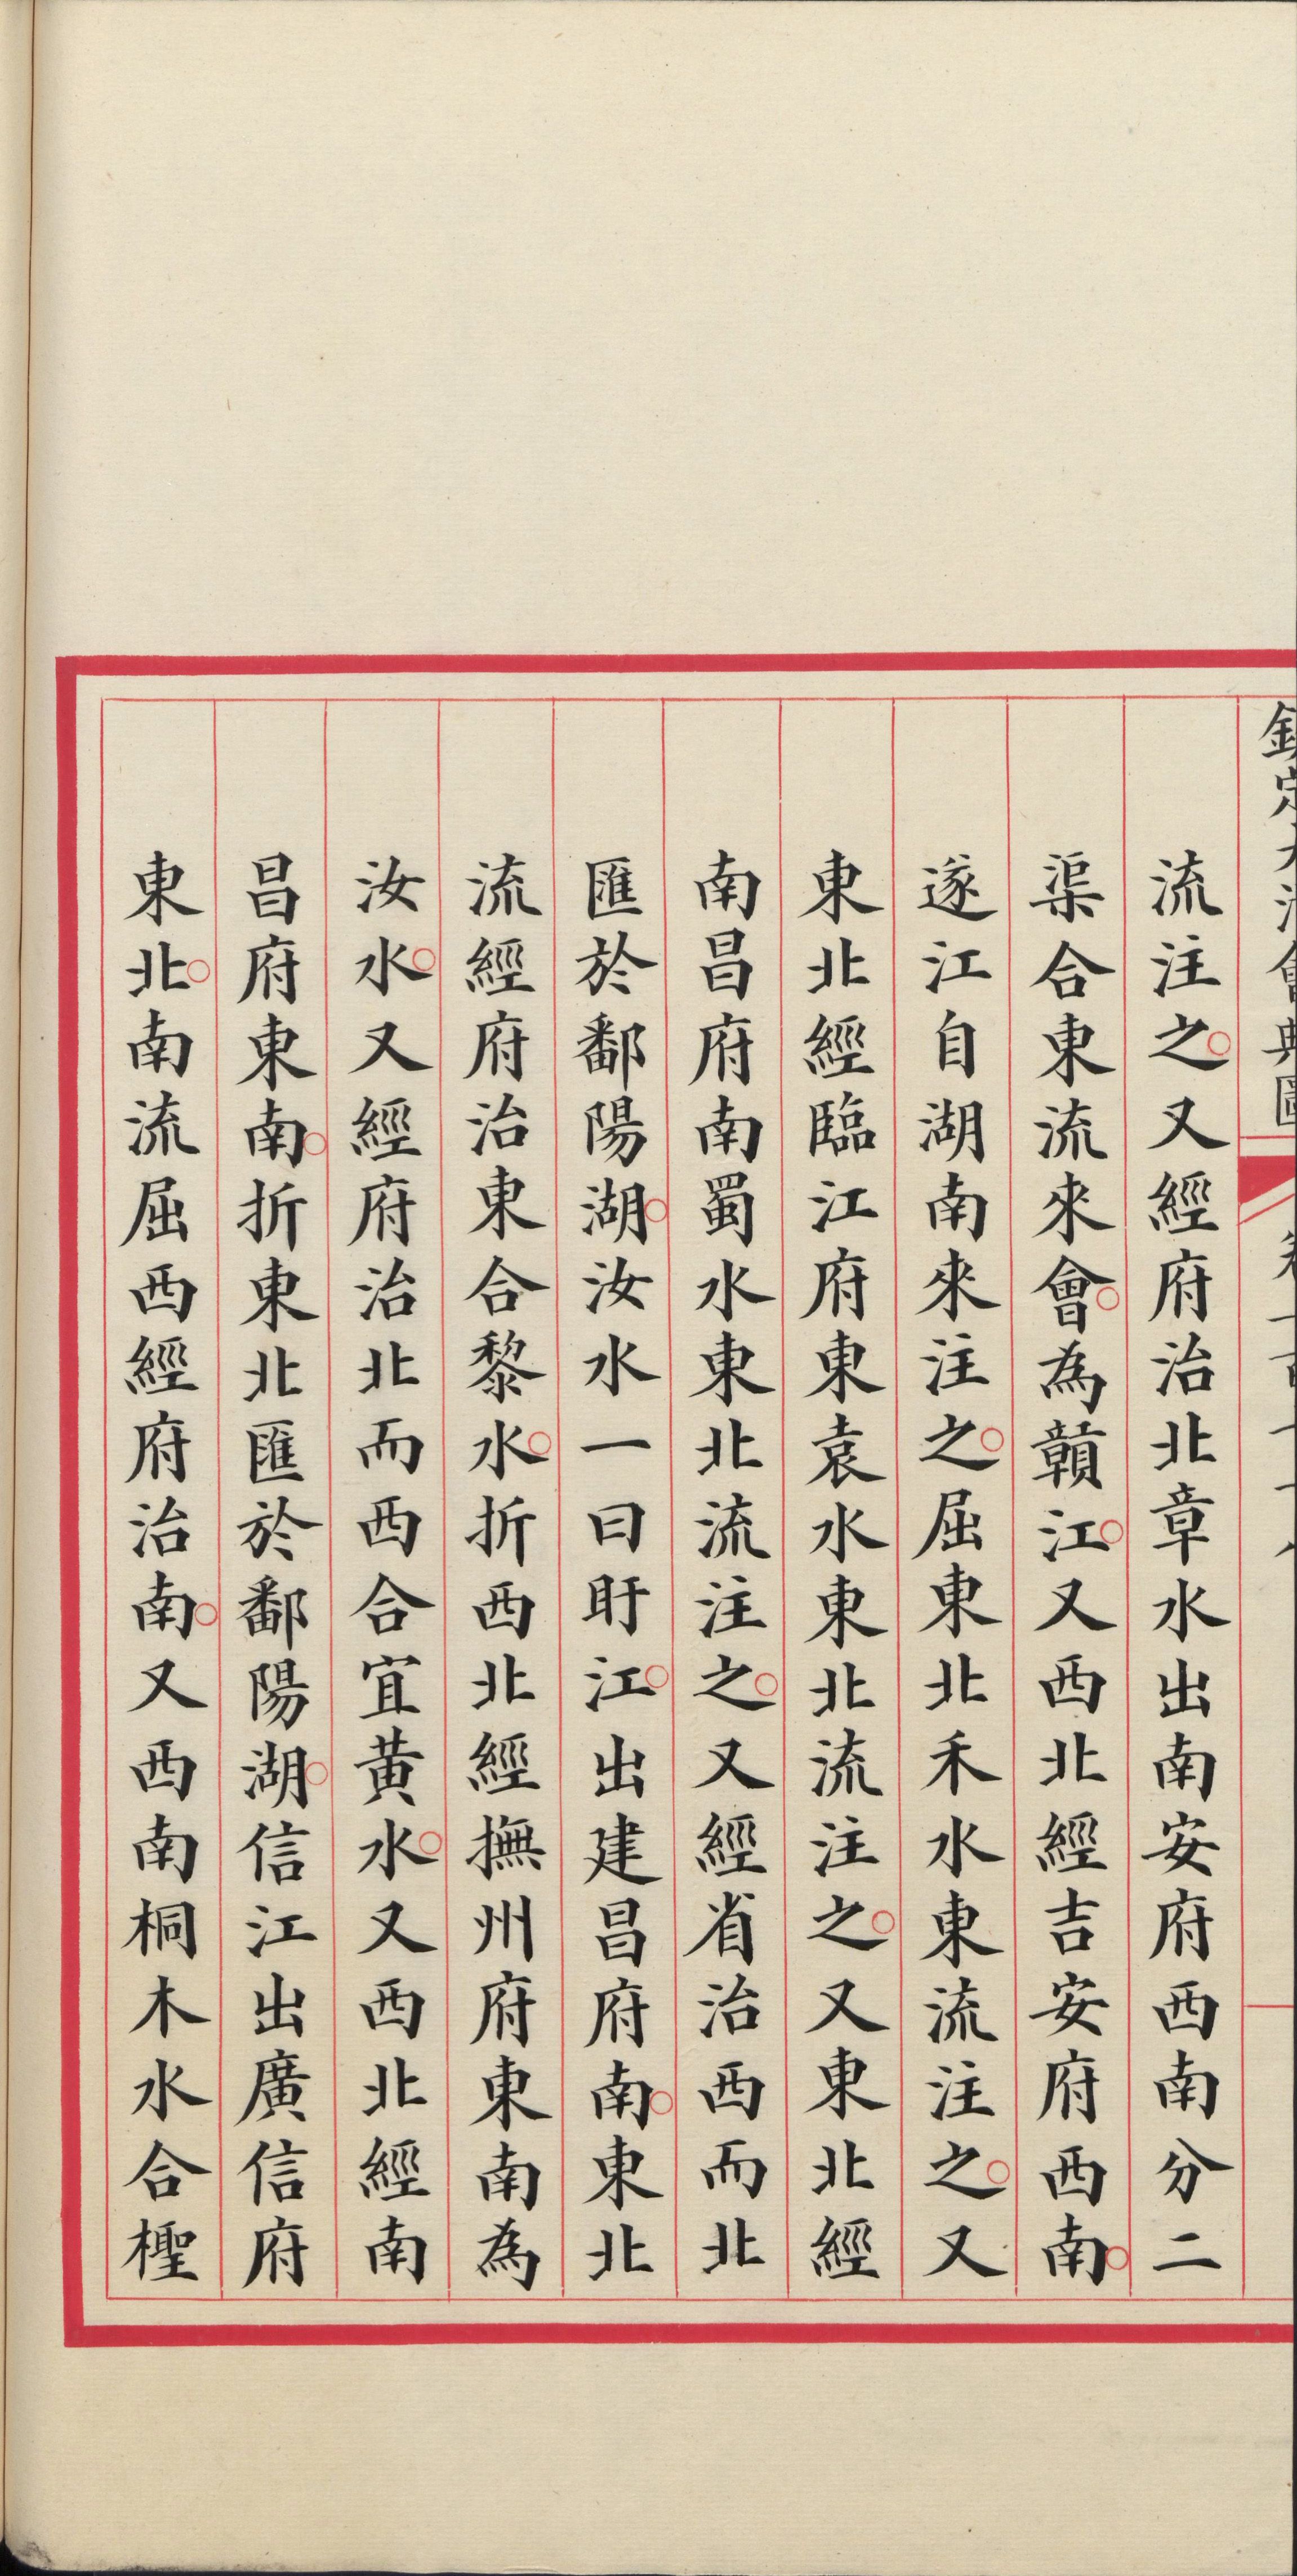 流注之○又經府治北章水出南安府西南分二
渠合東流來會○為贑江○又西北經吉安府西南○
遂江自湖南來注之○屈東北禾水東流注之○又
東北經臨江府東袁水東北流注之○又東北經
南昌府南蜀水東北流注之○又經省治西而北
匯於鄱陽湖○汝水一曰盱江○出建昌府南○東北
流經府治東合黎水○折西北經撫州府東南為
汝水○又經府治北而西合宜黃水○又西北經南
昌府東南○折東北匯於鄱陽湖○信江出廣信府
東北○南流屈西經府治南○又西南桐木水合檉